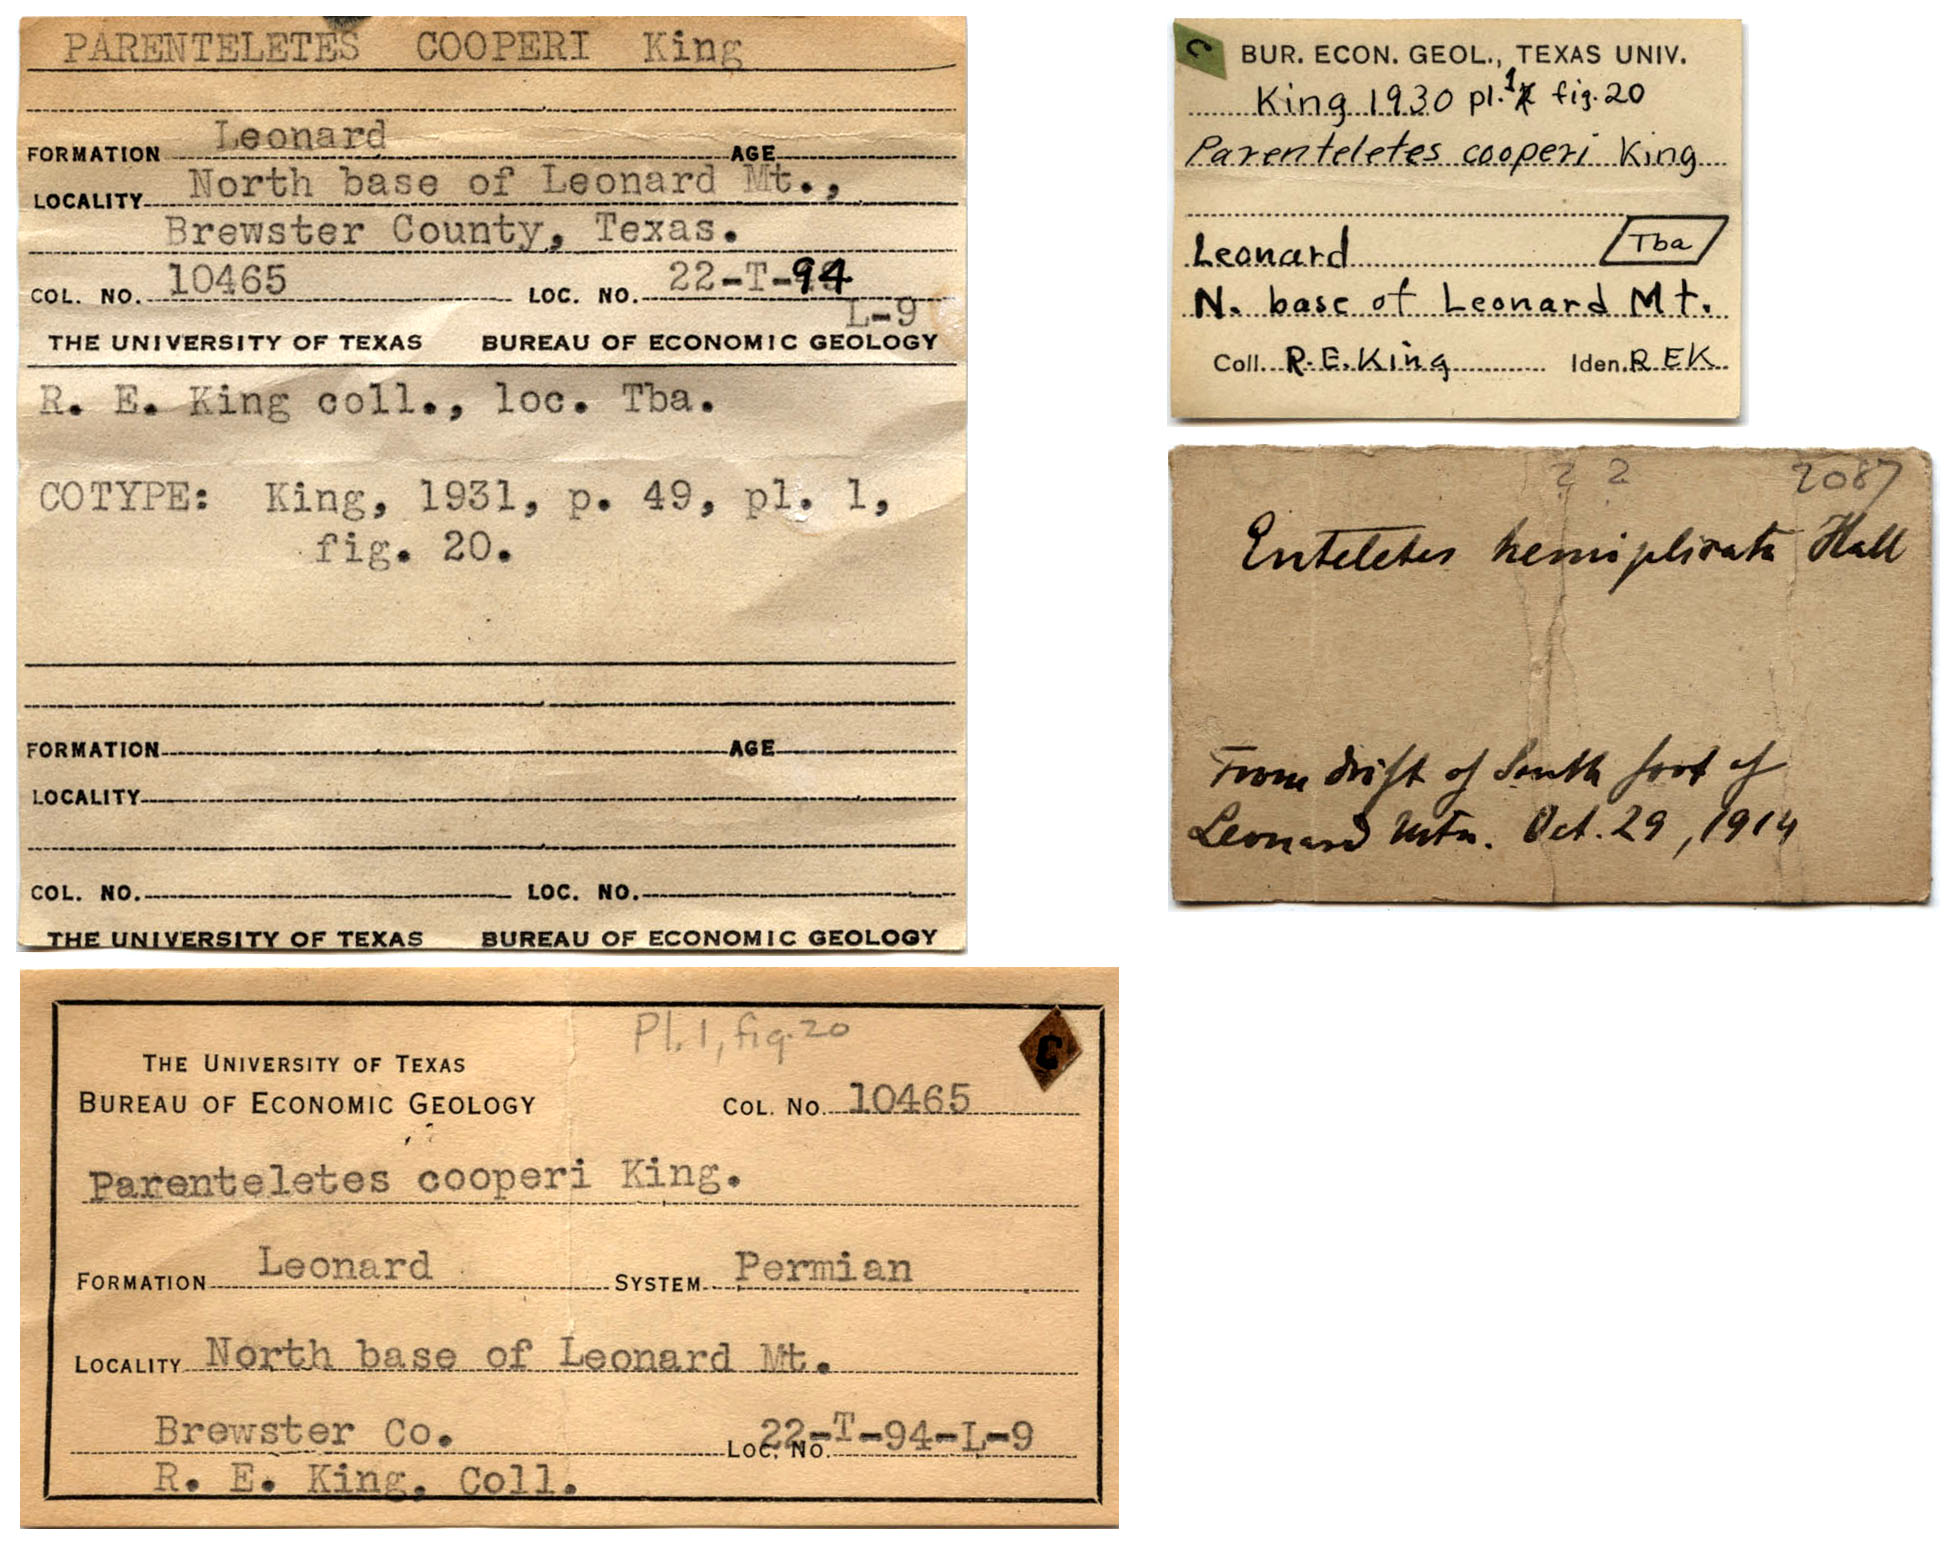 PARENTELETES COOPERI King
FORMATION Leonard AGE
LOCALITY North base of Leonard Mt.,
Brewster County, Texas.
COL. NO. 10465 LOC. NO. 22-T-94
L-9
THE UNIVERSITY OF TEXAS BUREAU OF ECONOMIC GEOLOGY
R. E. King coll., loc. Tba.
COTYPE: King, 1931, p. 49, pl. 1,
fig. 20.
FORMATION AGE
LOCALITY
COL. NO. LOC. NO.
THE UNIVERSITY OF TEXAS BUREAU OF ECONOMIC GEOLOGY
C
BUR. ECON. GEOL., TEXAS UNIV.
King 1930 pl. 1 fig. 20
Parenteletes cooperi King
Leonard Tba
N. base of Leonard Mt.
Coll. R. E. King Iden. REK
2 2 2087
Enteletes hemiplicata Hall
From drift of South foot of
Leonard Mtn. Oct. 29, 1914
Pl. 1, fig. 20
C
THE UNIVERSITY OF TEXAS
BUREAU OF ECONOMIC GEOLOGY COL. NO. 10465
Parenteletes cooperi King.
FORMATION Leonard SYSTEM Permian
LOCALITY North base of Leonard Mt.
Brewster Co. LOC. NO. 22-T-94-L-9
R. E. King, Coll.